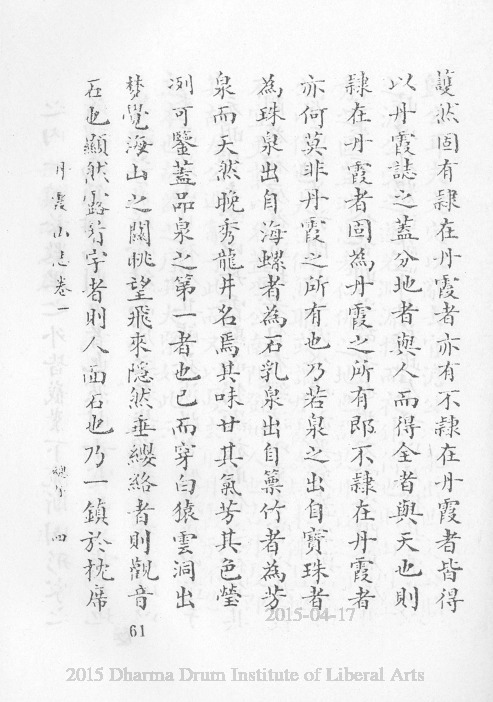 護然固有隷在丹霞者亦有不隷在丹霞者皆得
以丹霞誌之蓋分地者與人而得全者與天也則
隷在丹霞者固為丹霞之所有即不隷在丹霞者
亦何莫非丹霞之所有也乃若泉之出自寶珠者
為珠泉出自海螺者為石乳泉出自篻竹者為芳
泉而天然晚秀龍井名焉其味甘其氣芳其色瑩
冽可鑒蓋品泉之第一者也已而穿白猿雲洞出
夢覺海山之關眺望飛來隱然垂纓絡者則觀音
石也顯然露字者則人面石也乃一鎮於枕席
丹霞山志卷一
總序
四
61
2015-04-17
2015 Dharma Drum Institute of Liberal Arts